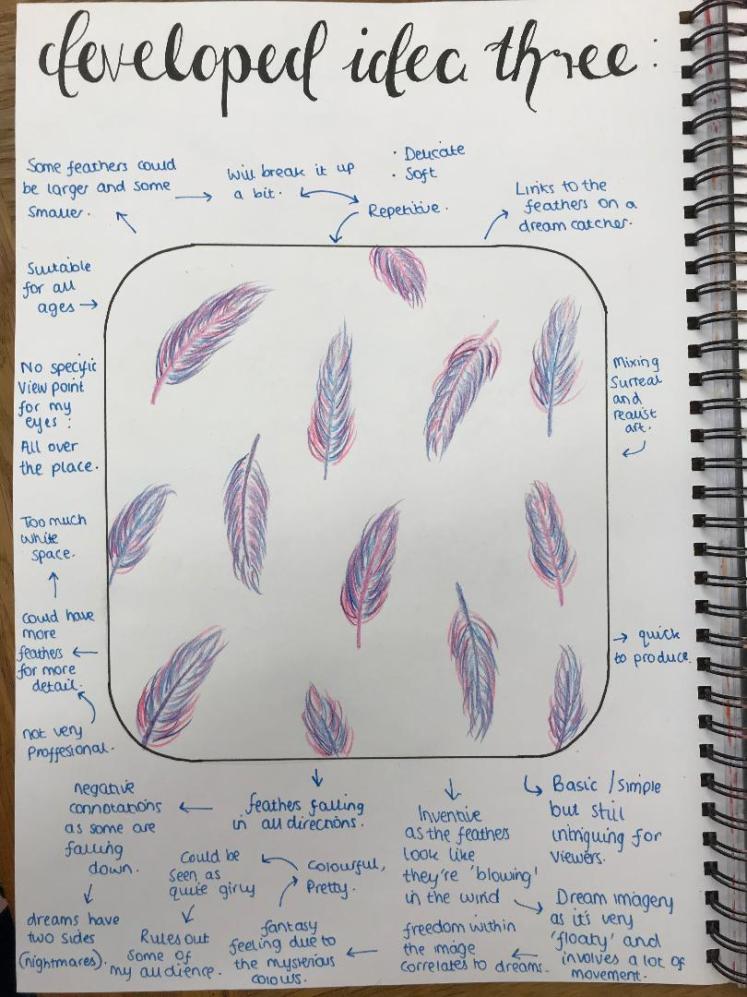 developed idea three:
Some feathers could
be larger and some
smaller.
Will break it up
a bit.
• Delicate
• Soft
Repetitive.
Links to the
feathers on a
dream catcher.
Suitable
for all
ages
No specific
view point
for my
eyes:
All over
the place.
Too much
white
space.
could have
more
feathers
for more
detail.
not very
Proffesional.
Mixing
surreal
and
realist
art.
quick
to produce.
feathers falling
in all directions.
negative
connotations
as some are
falling
down.
dreams have
two sides
(nightmares).
Could be
seen as
quite girly
Rules out
some of
my audience.
Colourful,
Pretty.
fantasy
feeling due to
the mysterious
colours.
Inventive
as the feathers
look like
they're 'blowing'
in the wind
freedom within
the image
correlates to dreams.
Basic/simple
but still
intriguing for
viewers.
Dream imagery
as it's very
'floaty' and
involves a lot of
movement.